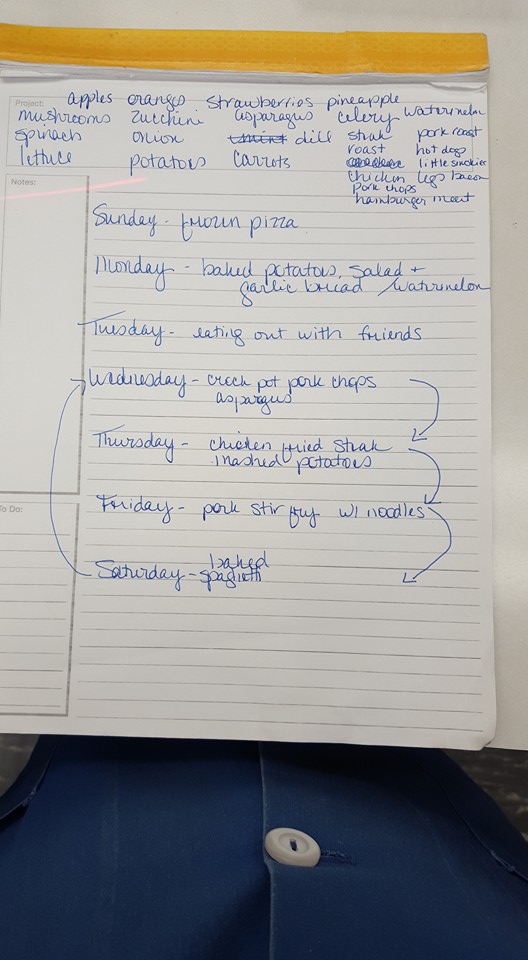 Project:
apples oranges strawberries pineapple
mushrooms zucchini asparagus celery watermelon
spinach onion dill steak pork roast
lettuce potatoes carrots roast hot dogs
little smokies
chicken legs bacon
pork chops
hamburger meat
Notes:
Sunday - frozen pizza
Monday - baked potatoes, salad +
garlic bread / watermelon
Tuesday - eating out with friends
Wednesday - crock pot pork chops
aspargus
Thursday - chicken fried steak
mashed potatoes
To Do:
Friday - pork stir fry w/ noodles
baked
Saturday - spagietti